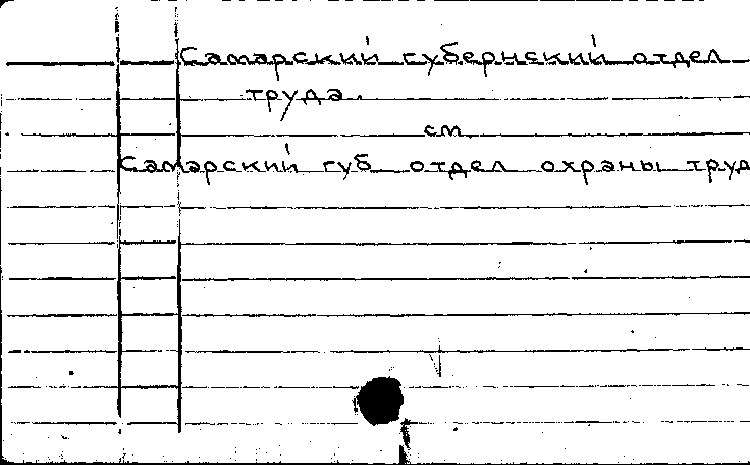 Самарский губернский отдел
труда.
см.
Самарский губ. отдел охраны труд